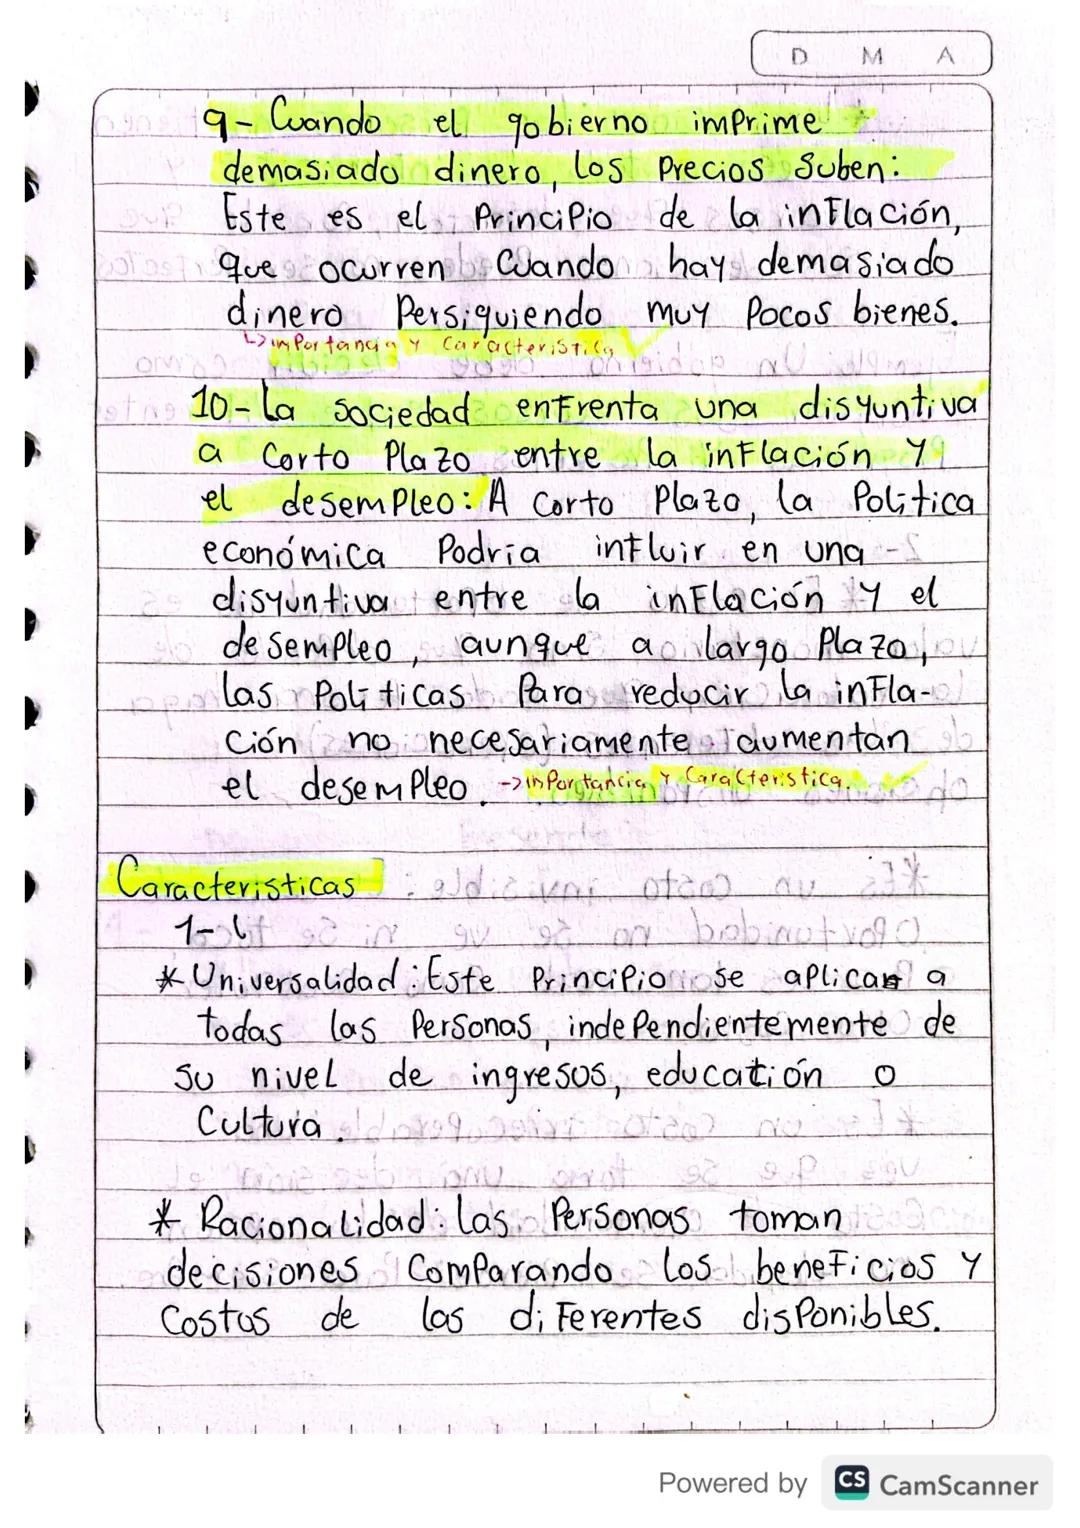 D M A
9- Cuando el gobierno imprime
demasiado dinero, los Precios Suben:
Este es el Principio de la inflación,
que ocurren Cuando hay demasiado
dinero Persiguiendo muy Pocos bienes.
↳ imPortancia y CaracterisTica
10- La sociedad enfrenta una disyuntiva
a Corto Plazo entre la inflación y
el desempleo: A Corto Plazo, la Política
económica Podria influir en una
disyuntiva entre la inflación y el
desempleo, aunque a largo Plazo,
las Políticas Para reducir la infla-
ción no necesariamente aumentan
el desempleo. -> inPortancia y Caracteristica.
Caracteristicas
1-
* Universalidad: Este Principio se aplican a
todas las Personas, independientemente de
su nivel de ingresos, educatión o
Cultura.
* Racionalidad: las Personas toman
decisiones Comparando los beneficios y
Costos de las diferentes disponibles.
Powered by CS CamScanner